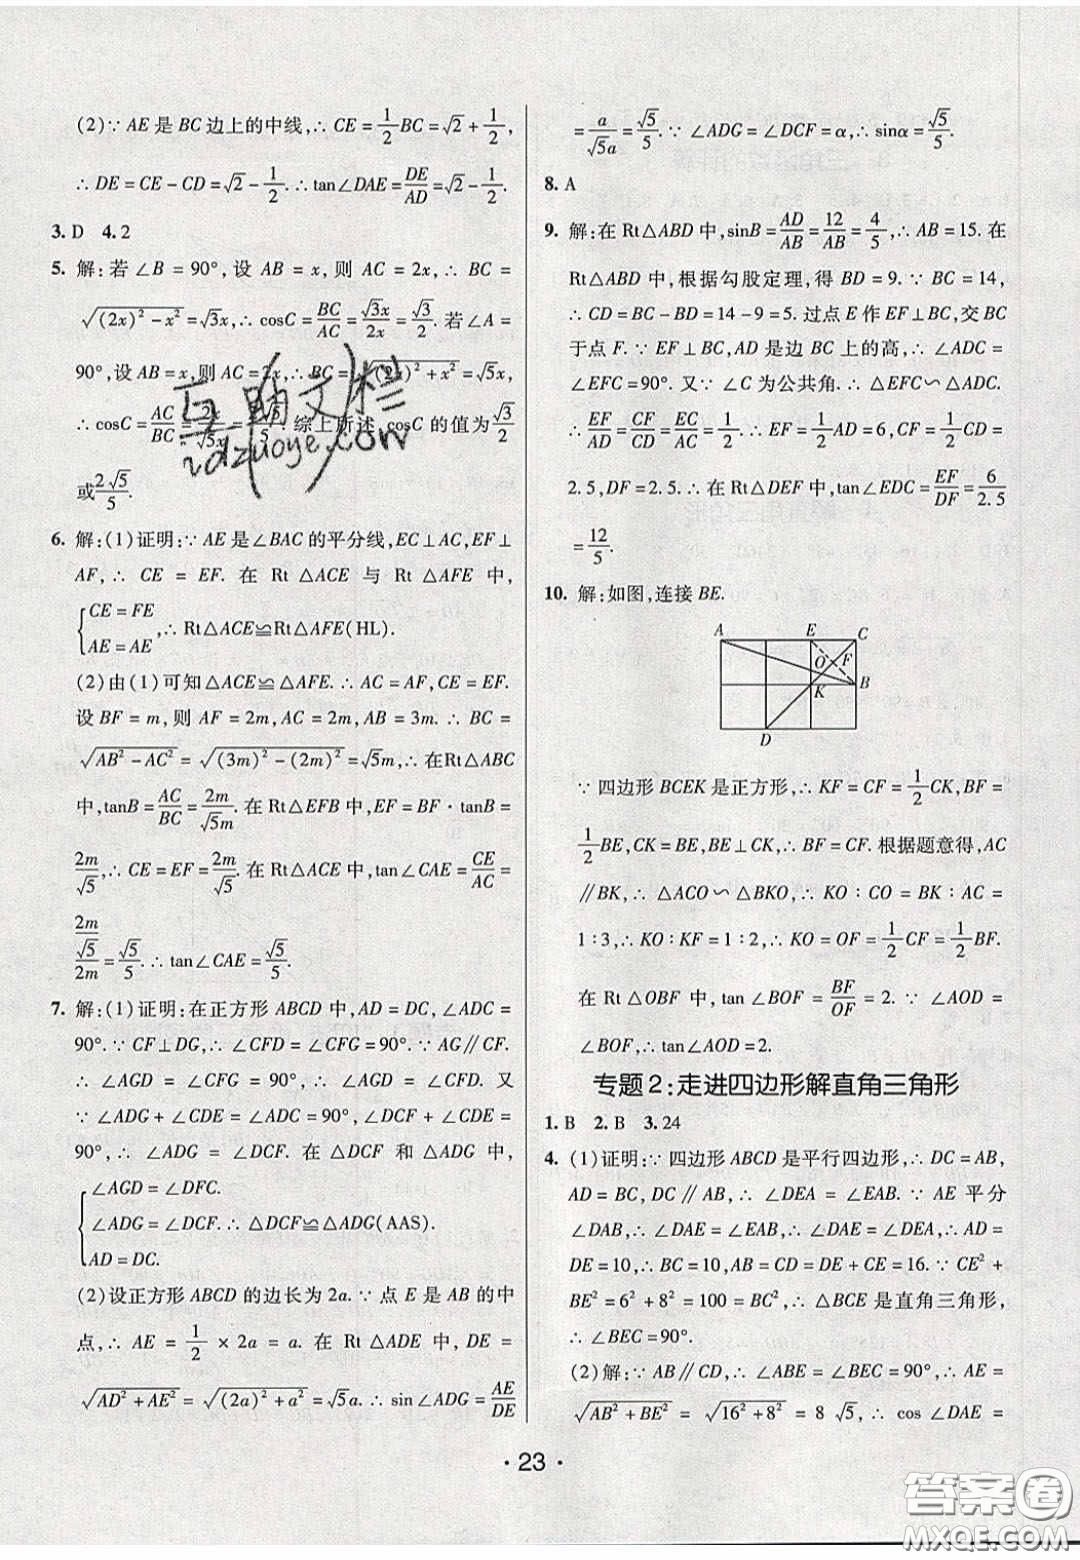 (2)∵ AE 是 BC 边上的中线,∴ CE = 1/2 BC = √2 + 1/2,
∴ DE = CE - CD = √2 - 1/2. ∴ tan∠DAE = DE/AD = √2 - 1/2.
3. D  4. 2
5. 解:若 ∠B = 90°,设 AB = x,则 AC = 2x,∴ BC =
√((2x)² - x²) = √3x,∴ cosC = BC/AC = √3x/2x = √3/2. 若 ∠A =
90°,设 AB = x,则 AC = 2x,∴ BC = √((2x)² + x²) = √5x,
∴ cosC = AC/BC = 2x/√5x = 2√5/5. 综上所述 cosC 的值为 √3/2
或 2√5/5.
6. 解:(1)证明:∵ AE 是 ∠BAC 的平分线,EC⊥AC,EF⊥
AF,∴ CE = EF. 在 Rt △ACE 与 Rt △AFE 中,
{CE = FE
AE = AE,∴ Rt△ACE≌Rt△AFE(HL).
(2)由(1)可知△ACE≌△AFE. ∴ AC = AF,CE = EF.
设 BF = m,则 AF = 2m,AC = 2m,AB = 3m. ∴ BC =
√(AB² - AC²) = √((3m)² - (2m)²) = √5m,∴ 在Rt△ABC
中,tanB = AC/BC = 2m/√5m. 在 Rt△EFB 中,EF = BF · tanB =
2m/√5,∴ CE = EF = 2m/√5. 在 Rt△ACE 中,tan∠CAE = CE/AC =
(2m/√5)/2m = √5/5. ∴ tan∠CAE = √5/5.
7. 解:(1)证明:在正方形 ABCD 中,AD = DC,∠ADC =
90°. ∵ CF⊥DG,∴ ∠CFD = ∠CFG = 90°. ∵ AG∥CF.
∴ ∠AGD = ∠CFG = 90°,∴ ∠AGD = ∠CFD. 又
∵ ∠ADG + ∠CDE = ∠ADC = 90°,∠DCF + ∠CDE =
90°,∴ ∠ADG = ∠DCF. 在 △DCF 和 △ADG 中,
{∠AGD = ∠DFC.
∠ADG = ∠DCF. ∴ △DCF≌△ADG(AAS).
AD = DC.
(2)设正方形 ABCD 的边长为 2a. ∵ 点 E 是 AB 的中
点,∴ AE = 1/2 × 2a = a. 在 Rt △ADE 中,DE =
√(AD² + AE²) = √((2a)² + a²) = √5a. ∴ sin∠ADG = AE/DE
= a/√5a = √5/5. ∵ ∠ADG = ∠DCF = α,∴ sinα = √5/5.
8. A
9. 解:在 Rt△ABD 中,sinB = AD/AB = 12/AB = 4/5,∴ AB = 15. 在
Rt△ABD 中,根据勾股定理,得 BD = 9. ∵ BC = 14,
∴ CD = BC - BD = 14 - 9 = 5. 过点 E 作 EF⊥BC,交 BC
于点 F. ∵ EF⊥BC,AD 是边 BC 上的高,∴ ∠ADC =
∠EFC = 90°. 又∵ ∠C 为公共角. ∴ △EFC∽△ADC.
∴ EF/AD = CF/CD = EC/AC = 1/2. ∴ EF = 1/2 AD = 6,CF = 1/2 CD =
2.5,DF = 2.5. ∴ 在 Rt△DEF 中,tan∠EDC = EF/DF = 6/2.5
= 12/5.
10. 解:如图,连接 BE.
A E C
O F
K B
D
∵ 四边形 BCEK 是正方形,∴ KF = CF = 1/2 CK,BF =
1/2 BE,CK = BE,BE⊥CK,∴ BF = CF. 根据题意得,AC
∥BK,∴ △ACO∽△BKO,∴ KO∶CO = BK∶AC =
1∶3,∴ KO∶KF = 1∶2,∴ KO = OF = 1/2 CF = 1/2 BF.
在 Rt △OBF 中,tan∠BOF = BF/OF = 2. ∵ ∠AOD =
∠BOF,∴ tan∠AOD = 2.
专题 2:走进四边形解直角三角形
1. B  2. B  3. 24
4. (1)证明:∵ 四边形 ABCD 是平行四边形,∴ DC = AB,
AD = BC,DC∥AB,∴ ∠DEA = ∠EAB. ∵ AE 平分
∠DAB,∴ ∠DAE = ∠EAB,∴ ∠DAE = ∠DEA,∴ AD =
DE = 10,∴ BC = 10,AB = CD = DE + CE = 16. ∵ CE² +
BE² = 6² + 8² = 100 = BC²,∴ △BCE 是直角三角形,
∴ ∠BEC = 90°.
(2)解:∵ AB∥CD,∴ ∠ABE = ∠BEC = 90°,∴ AE =
√(AB² + BE²) = √(16² + 8²) = 8√5,∴ cos∠DAE =
· 23 ·
互助文档
zdzuoye.com
答案圈
MXQE.COM